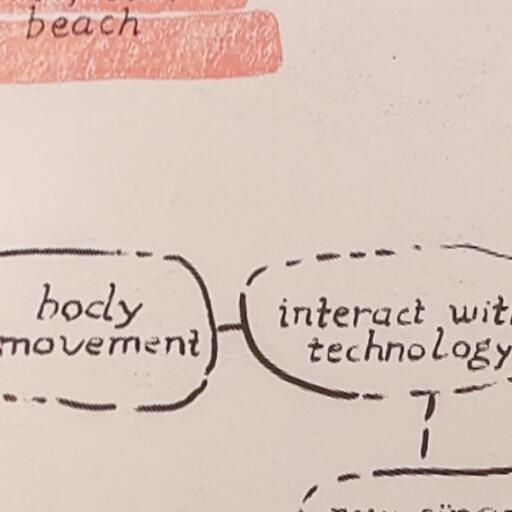 beach
body
movement
interact with
technology